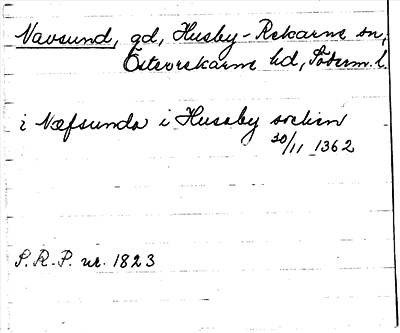 Navsund, gd, Husby-Rekarne sn,
Österrekarne hd, Söderm. l.
i Næfsunda i Husaby sochin
30/11 1362
S.R.P. nr. 1823